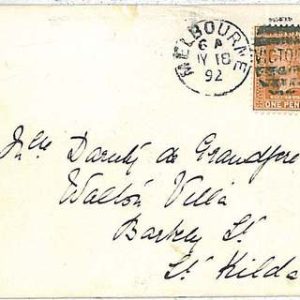 MELBOURNE
6 A
IY 18
92
VICTO
ONE PEN
Mlle Daruty de Grandpré
Walton Villa
Barkly St.
St. Kilda